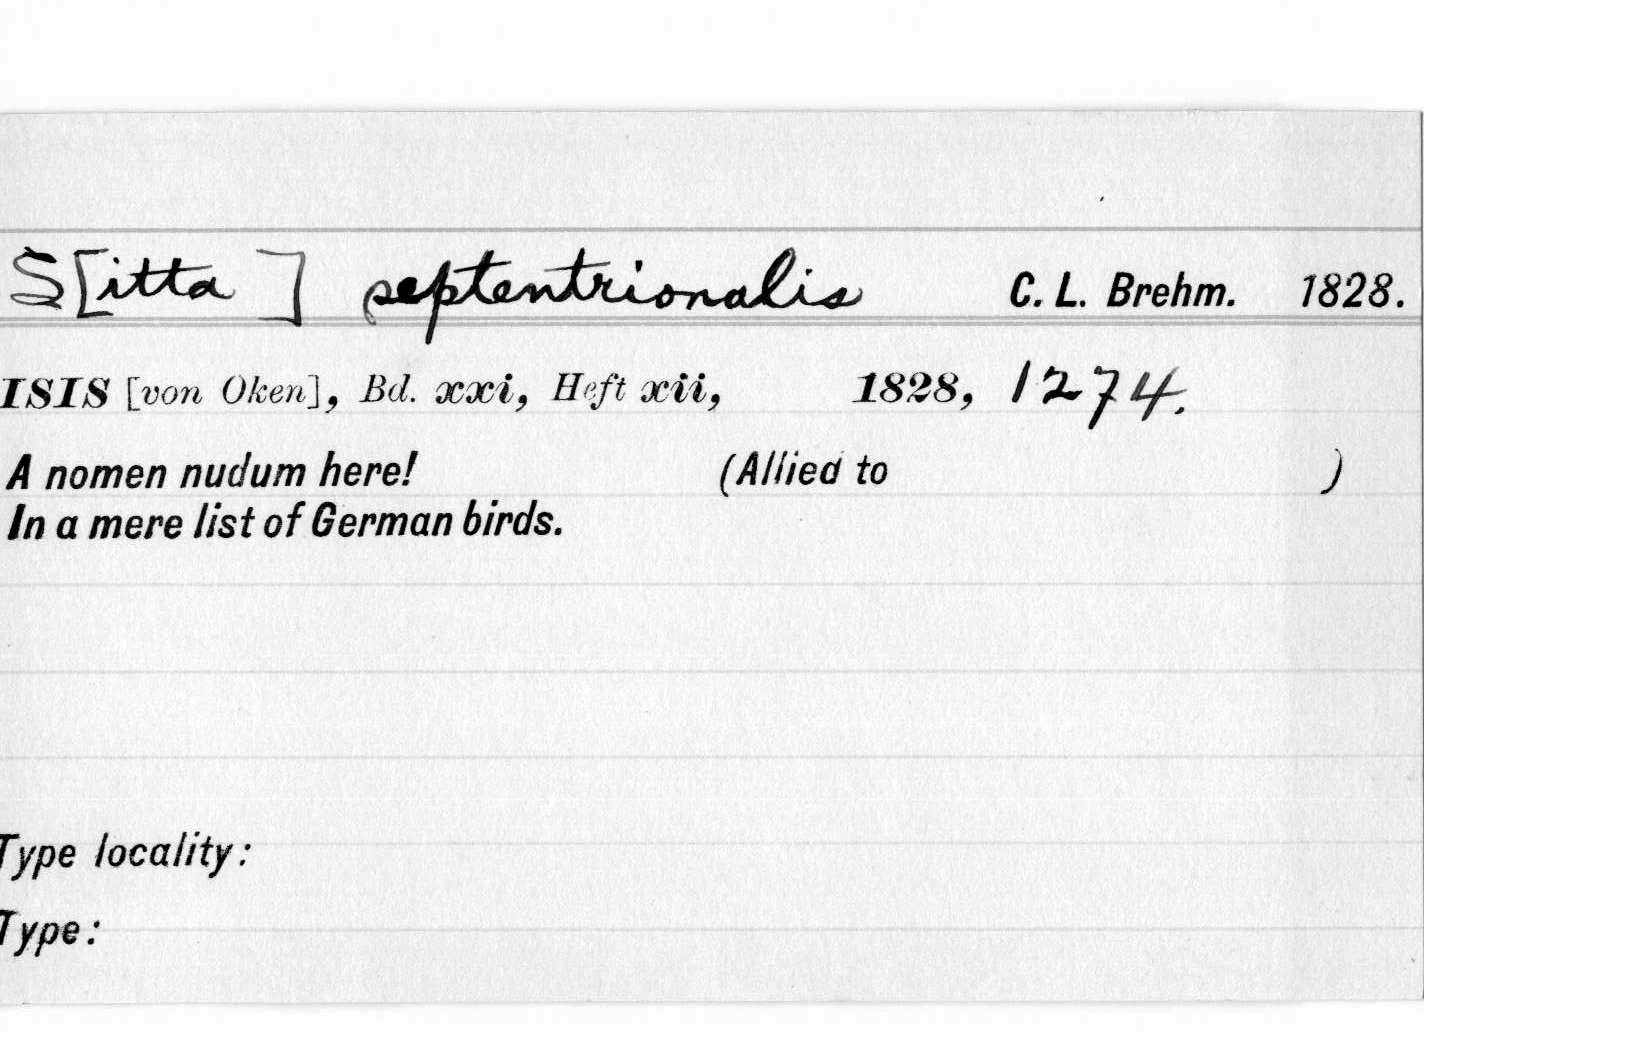 S[itta ] septentrionalis C. L. Brehm. 1828.
ISIS [von Oken], Bd. xxi, Heft xii, 1828, 1274.
A nomen nudum here! (Allied to )
In a mere list of German birds.
Type locality:
Type: